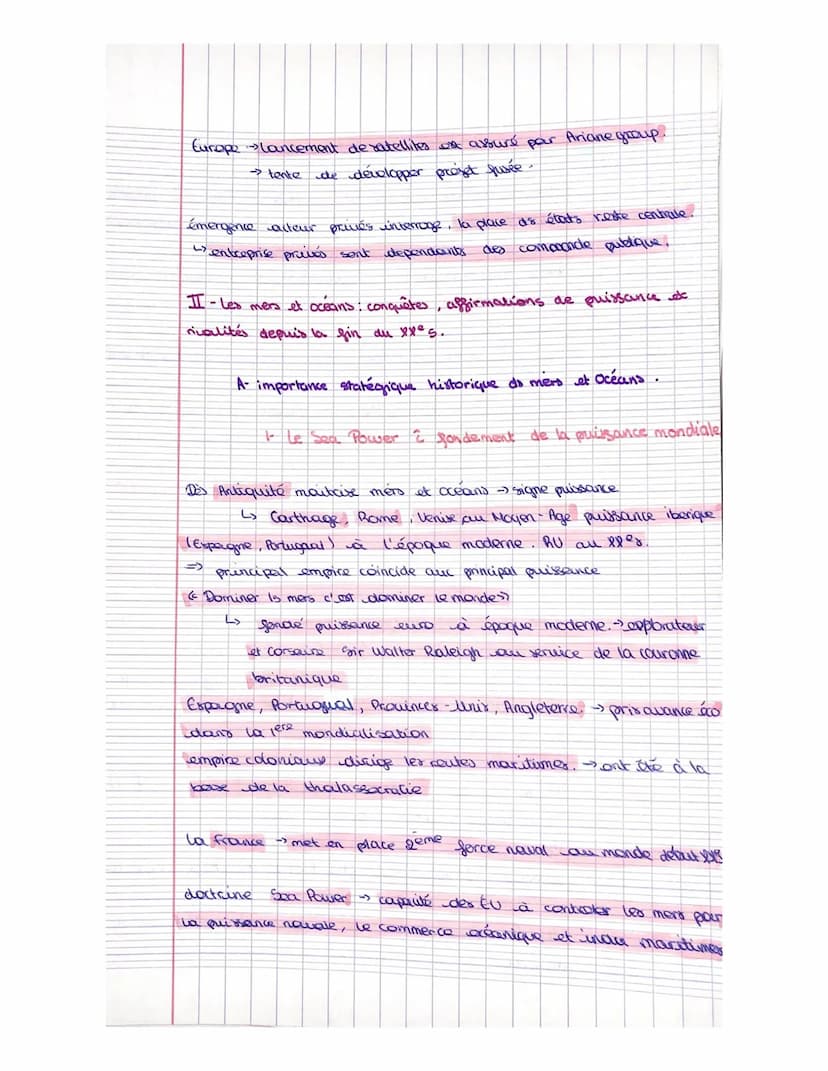 Europe → Lancement de satellites est assuré par Ariane group.
→ tente de développer projet fusée.
émergence acteur privés interroge, la place ds états reste centrale.
↳ entreprise privés sont dependants des commande publique.
II - Les mers et océans : conquêtes, affirmations de puissance et
rivalités depuis la fin du XXe s.
A- importance stratégique historique ds mers et Océans.
1- Le Sea Power fondement de la puissance mondiale
Dès Antiquité maitrise mers et océans → signe puissance
↳ Carthage, Rome, Venise au Moyen-Age puissance iberique
(Espagne, Portugal) à l'époque moderne. RU au XXes.
⇒ principal empire coincide avec principal puissance
« Dominer ls mers c'est dominer le monde »
↳ fondé puissance euro à époque moderne. → explorateur
et corsaire Sir Walter Raleigh au service de la couronne
britanique
Espagne, Portugual, Provinces-Unis, Angleterre. → pris avance éco
dans la 1ère mondialisation
empire coloniaux dirige les routes maritimes. → ont été à la
base de la thalassocratie
La France → met en place 2ème force naval au monde début
doctrine Sea Power → capacité des EU à controler les mers pour
la puissance navale, le commerce océanique et indus maritimes